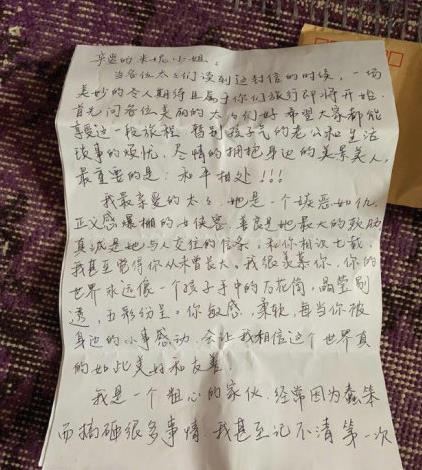 亲爱的米忱小姐。
当各位太太们读到这封信的时候，一场
美妙的令人期待且属于你们旅行即将开始。
首先问各位美丽的太太们好希望大家都能
享受这一段旅程，暂别孩子气的老公和生活
琐事的烦忧，尽情的拥抱身边的美景美人，
最重要的是：和平相处!!!
我最亲爱的太太，她是一个嫉恶如仇，
正义感爆棚的女侠客，善良是她最大的软肋
真诚是她与人交往的信条，和你相识七载，
我甚至觉得你从未曾长大。我很羡慕你，你的
世界永远像一个孩子手中的万花筒，晶莹剔
透，五彩纷呈。你敏感，柔软，每当你被
身边的小事感动，会让我相信这个世界真
的如此美好和友善。
我是一个粗心的家伙，经常因为蠢笨
而搞砸很多事情，我甚至记不清第一次